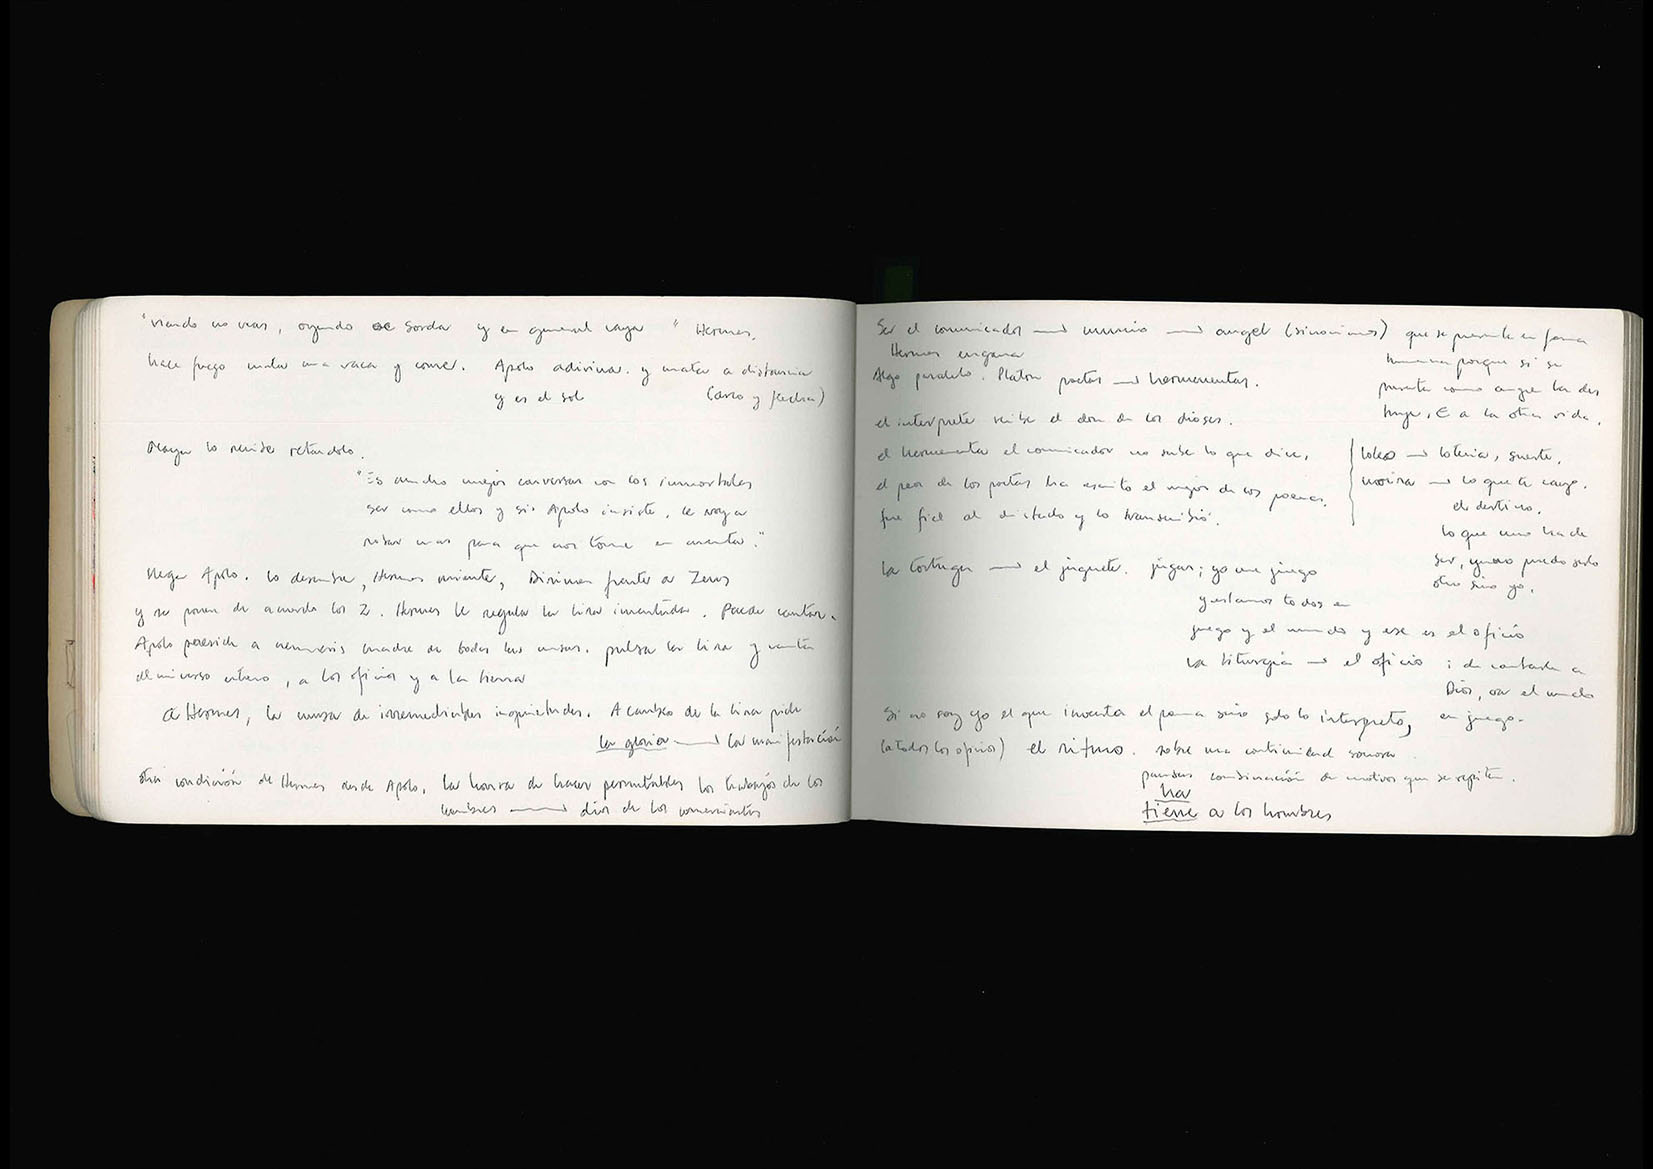 "viendo no veas, oyendo se sorda y en general caya" Hermes,
hace fuego mata una vaca y come. Apolo adivina. y mata a distancia
y es el sol (arco y flecha)
Maya lo recibe retandolo.
"Es mucho mejor conversar con los inmortales
ser como ellos y si Apolo insiste, le voy a
robar mas para que nos tome en cuenta."
llega Apolo. lo descubre, Hermes miente, Dirimen frente a Zeus
y se ponen de acuerdo los 2. Hermes le regala la lira inventada. Puede cantar.
Apolo persuade a nemesis madre de todas las musas. pulsa la lira y canta
al universo entero, a los oficios y a la tierra
a Hermes, la musa de irremediables inquietudes. A cambio de la lira pide
la gloria → la manifestación
otra condición de Hermes desde Apolo. la honra de hacer permutables los trabajos de los
hombres → dios de los comerciantes
Ser el comunicador → nuncio → angel (sinonimos) que se presenta en forma
Hermes engaña
humana porque si se
Algo paralelo. Platon poetas → hermeneutas.
presenta como angel las des
truye, E a la otra vida.
el interprete recibe el don de los dioses.
el hermeneuta el comunicador no sabe lo que dice,
el peor de los poetas ha escrito el mejor de los poemas.
fue fiel al dictado y lo transmitió.
→ loteria, suerte.
moira → lo que te cayo.
el destino.
lo que uno ha de
ser, y no puedo serlo
otro sino yo.
La tortuga → el juguete. jugar; yo me juego
y estamos todos en
juego y el mundo y ese es el oficio
La liturgia → el oficio : de cantarle a
Dios, el mundo
en juego.
Si no soy yo el que inventa el poema sino solo lo interpreto,
(a todos los oficios) el ritmo. sobre una continuidad sonora
pausas combinación de motivos que se repiten.
ha
tiene a los hombres